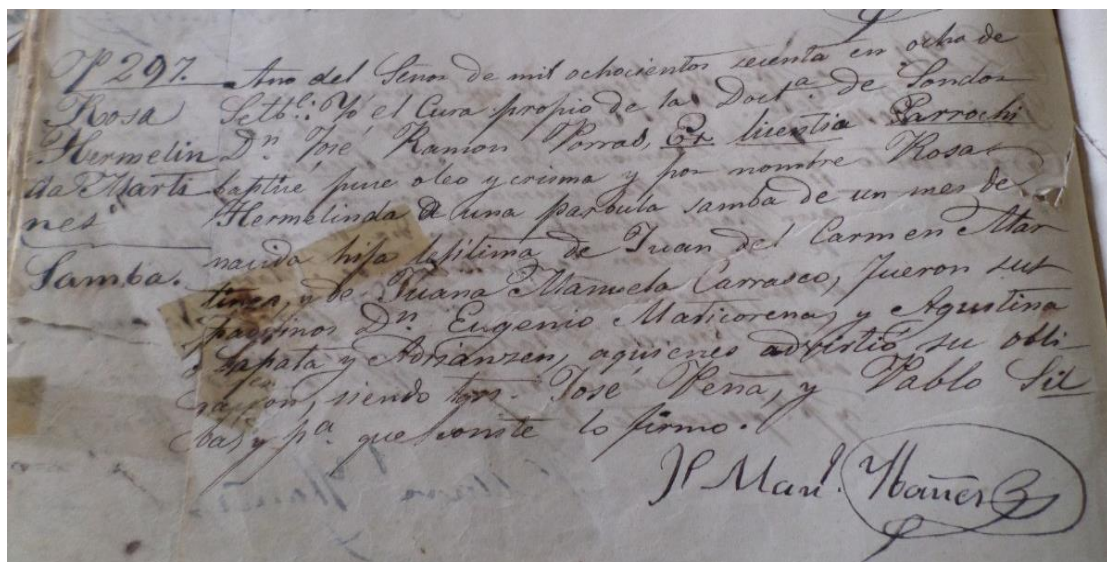 Nº 297.
Rosa
Hermelin
da Marti
nes
Samba.
Ano del Señor de mil ochocientos secenta en ocho de
Setb.: Yo el Cura propio de la Doct.ª de Sondor
D.n José Ramon Porras, Ex licentia Parrochi
baptizé puse oleo y crisma y por nombre Rosa
Hermelinda a una parbula samba de un mes de
nacida hija lejitima de Juan del Carmen Mar
tines, y de Juana Manuela Carrasco, fueron sus
padrinos D.n Eugenio Maticorena, y Agustina
Sapata y Adrianzen, aquienes advirtió su obli
gacion, siendo tgos. José Peña, y Pablo Sil
bas, y p.ª que conste lo firmo.
Man.l Ybañes